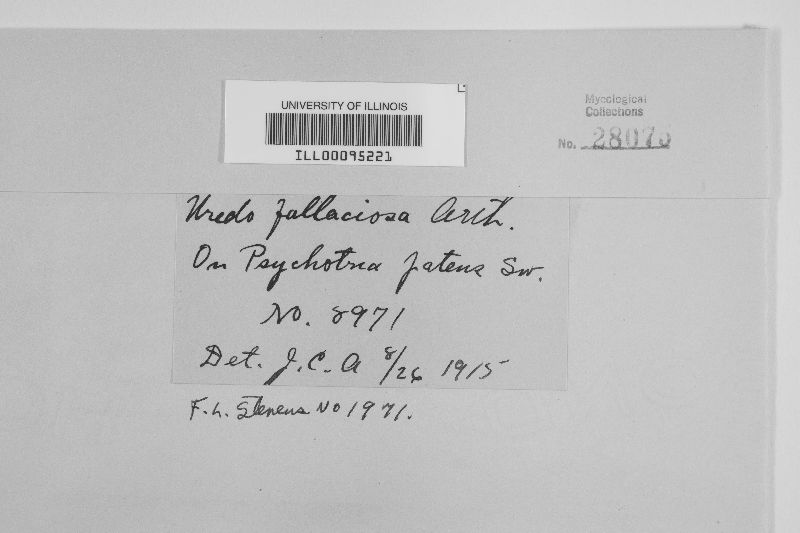 UNIVERSITY OF ILLINOIS
ILL00095221
Mycological
Collections
No. 28075
Uredo fallaciosa Arth.
On Psychotria patens Sw.
No. 8971
Det. J.C.A 8/26 1915
F.L. Stevens No 1971.